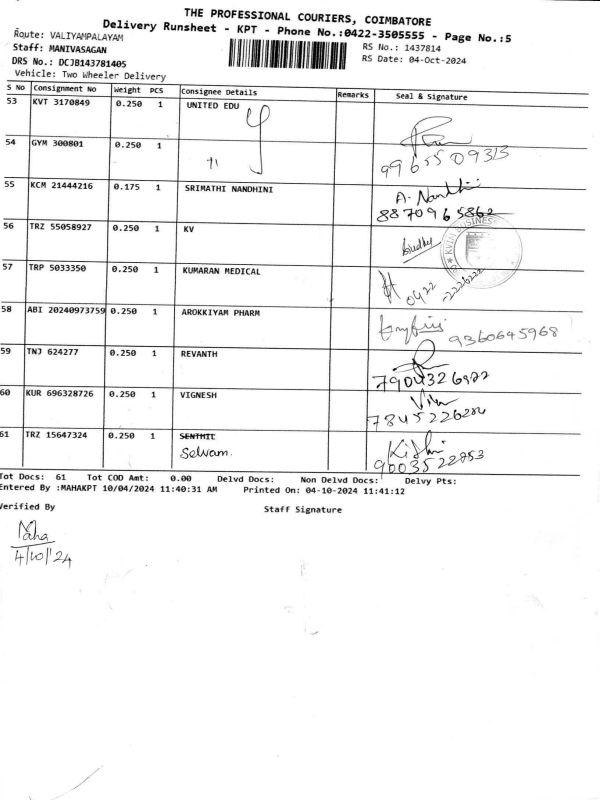 THE PROFESSIONAL COURIERS, COIMBATORE
Delivery Runsheet - KPT - Phone No.:0422-3505555 - Page No.:5
Route: VALIYAMPALAYAM
RS No.: 1437814
Staff: MANIVASAGAN
RS Date: 04-Oct-2024
DRS No.: DCJB143781405
Vehicle: Two Wheeler Delivery
S No Consignment No Weight PCS Consignee Details Remarks Seal & Signature
53 KVT 3170849 0.250 1 UNITED EDU
54 GYM 300801 0.250 1 9965509313
55 KCM 21444216 0.175 1 SRIMATHI NANDHINI A. Nandhini
8870965862
56 TRZ 55058927 0.250 1 KV
57 TRP 5033350 0.250 1 KUMARAN MEDICAL 0422
-2226222
58 ABI 20240973759 0.250 1 AROKKIYAM PHARM 9360645968
59 TNJ 624277 0.250 1 REVANTH
7904326922
60 KUR 696328726 0.250 1 VIGNESH
7845226284
61 TRZ 15647324 0.250 1 SENTHIL
Selvam.
9003522853
Tot Docs: 61 Tot COD Amt: 0.00 Delvd Docs: Non Delvd Docs: Delvy Pts:
Entered By :MAHAKPT 10/04/2024 11:40:31 AM Printed On: 04-10-2024 11:41:12
Verified By Staff Signature
Maha
4/10/'24